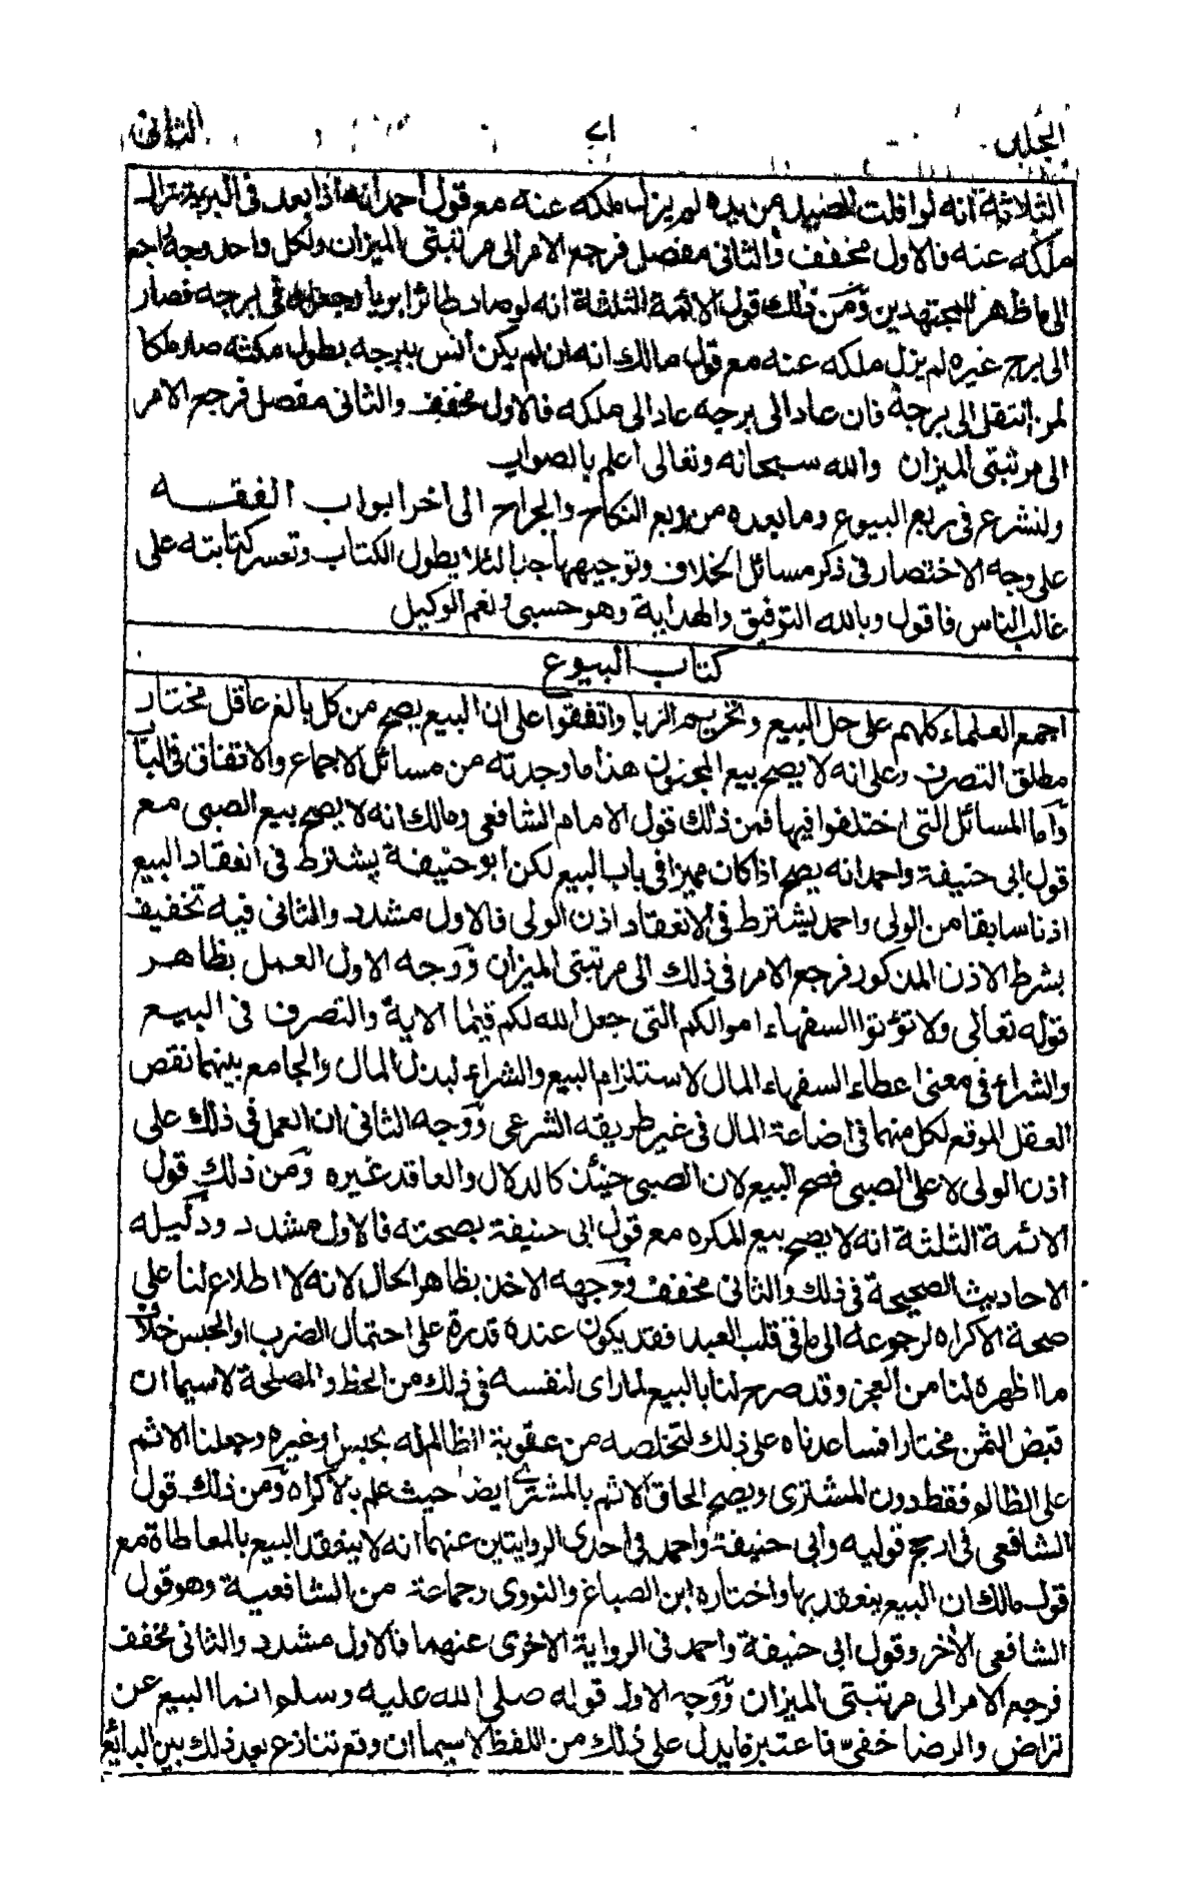 المجلد ٧١ الثانى
الثلاثة انه لو افلت الصيد من يده لم يزل ملكه عنه مع قول احمد انه اذا بعد فى البرية زال
ملكه عنه فالاول مخفف والثانى مفصل فرجع الامر الى مرتبتى الميزان ولكل واحد وجه راجع
الى ما ظهر للمجتهدين ومن ذلك قول الائمة الثلثة انه لو صاد طائرا بريا وجعله فى برجه فصار
الى برج غيره لم يزل ملكه عنه مع قول مالك انه ان لم يكن انس ببرجه بطول مكثه صار ملكا
لمن انتقل الى برجه فان عاد الى برجه عاد الى ملكه فالاول مخفف والثانى مفصل فرجع الامر
الى مرتبتى الميزان والله سبحانه وتعالى اعلم بالصواب
ولنشرع فى ربع البيوع وما بعده من ربع النكاح والجراح الى اخر ابواب الفقه
على وجه الاختصار فى ذكر مسائل الخلاف وتوجيهها جدا لئلا يطول الكتاب وتعسر كتابته على
غالب الناس فاقول وبالله التوفيق والهداية وهو حسبى ونعم الوكيل
كتاب البيوع
اجمع العلماء كلهم على حل البيع وتحريم الربا واتفقوا على ان البيع يصح من كل بالغ عاقل مختار
مطلق التصرف وعلى انه لا يصح بيع المجنون هذا ما وجدته من مسائل الاجماع والاتفاق فى الباب
واما المسائل التى اختلفوا فيها فمن ذلك قول الامام الشافعى ومالك انه لا يصح بيع الصبى مع
قول ابى حنيفة واحمد انه يصح اذا كان مميزا فى باب البيع لكن ابو حنيفة يشترط فى انعقاد البيع
اذنا سابقا من الولى واحمد يشترط فى الانعقاد اذن الولى فالاول مشدد والثانى فيه تخفيف
بشرط الاذن المذكور فرجع الامر فى ذلك الى مرتبتى الميزان ووجه الاول العمل بظاهر
قوله تعالى ولا تؤتوا السفهاء اموالكم التى جعل الله لكم قيما الاية والتصرف فى البيع
والشراء فى معنى اعطاء السفهاء المال لاستلزام البيع والشراء لبذل المال والجامع بينهما نقص
العقل الموقع لكل منهما فى اضاعة المال فى غير طريقه الشرعى ووجه الثانى ان العمل فى ذلك على
اذن الولى لا على الصبى فصح البيع لان الصبى حينئذ كالدلال والعاقد غيره ومن ذلك قول
الائمة الثلثة انه لا يصح بيع المكره مع قول ابى حنيفة بصحته فالاول مشدد ودليله
الاحاديث الصحيحة فى ذلك والثانى مخفف ووجهه الاخذ بظاهر الحال لانه لا اطلاع لنا على
صحة الاكراه لرجوعه الى ما فى قلب العبد فقد يكون عنده قدرة على احتمال الضرب او الحبس خلاف
ما اظهره لنا من العجز وقد صرح لنا بالبيع لما راى لنفسه فى ذلك من الحظ والمصلحة لا سيما ان
قبض الثمن مختارا فساعدناه على ذلك لتخلصه من عقوبة الظالم له بحبس او غيره وجعلنا الاثم
على الظالم فقط دون المشترى ويصح الحاق الاثم بالمشترى ايضا حيث علم بالاكراه ومن ذلك قول
الشافعى فى ارجح قوليه وابى حنيفة واحمد فى احدى الروايتين عنهما انه لا ينعقد البيع بالمعاطاة مع
قول مالك ان البيع ينعقد بها واختاره ابن الصباغ والنووى وجماعة من الشافعية وهو قول
الشافعى الاخر وقول ابى حنيفة واحمد فى الرواية الاخرى عنهما فالاول مشدد والثانى مخفف
فرجع الامر الى مرتبتى الميزان ووجه الاول قوله صلى الله عليه وسلم انما البيع عن
تراض والرضا خفى فاعتبر ما يدل على ذلك من اللفظ لا سيما ان وقع تنازع بعد ذلك بين البائع